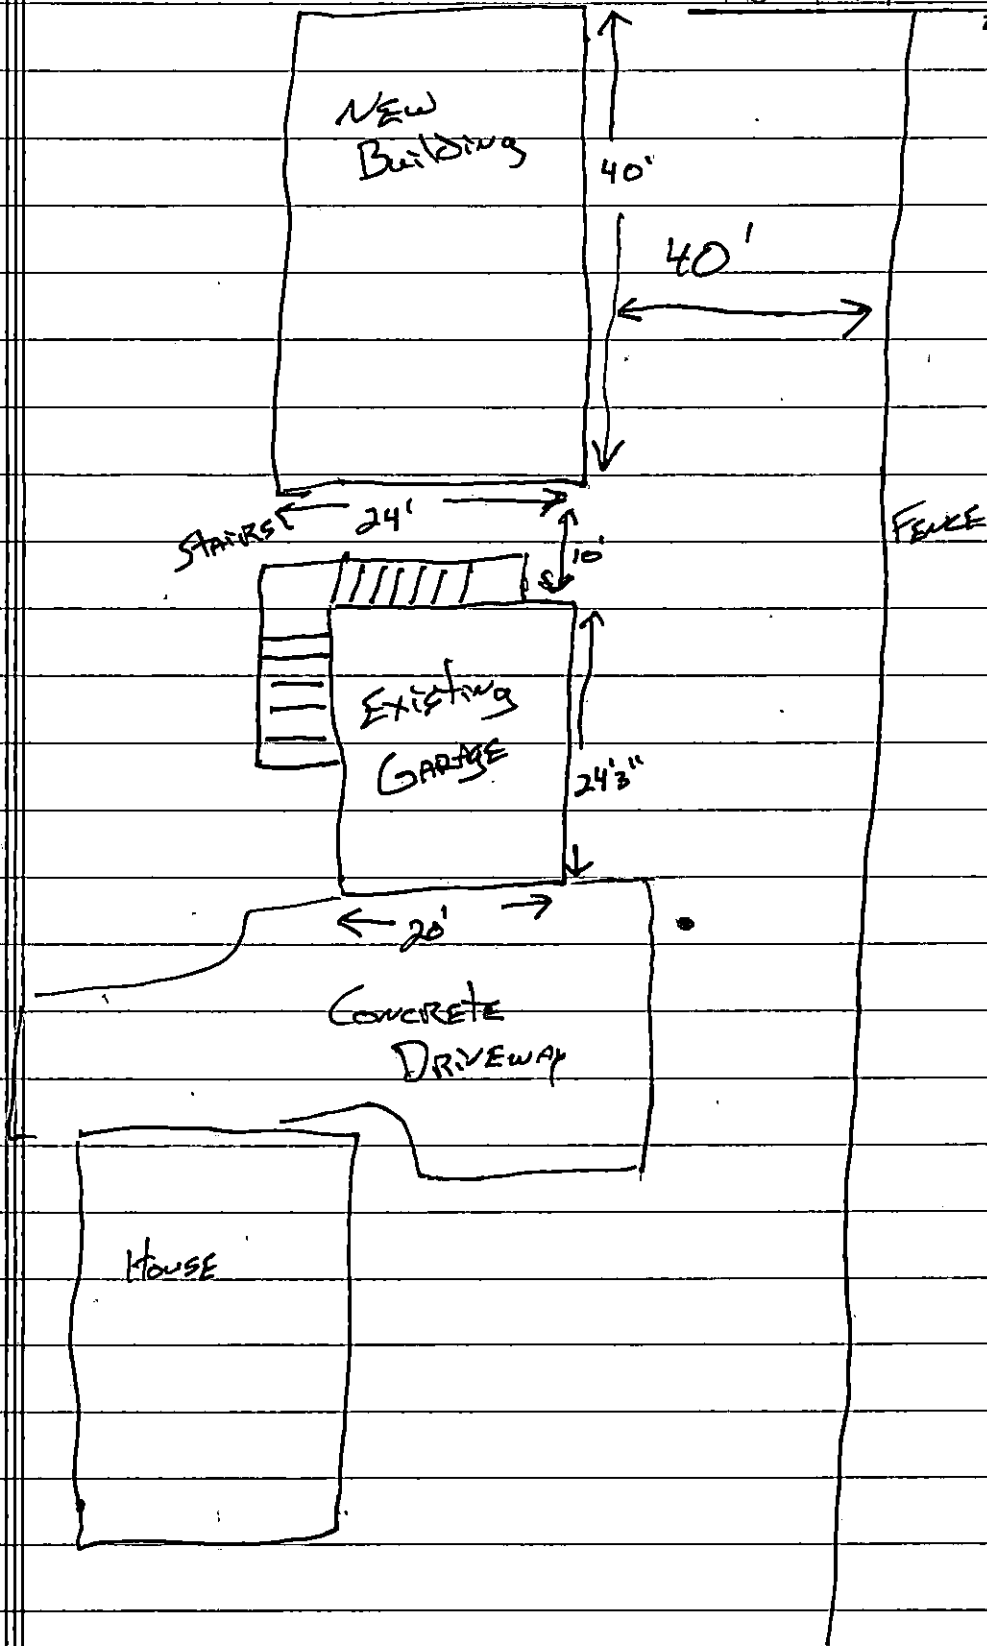 New
Building
40'
40'
Stairs
24'
10'
Fence
Existing
Garage
24'3"
20'
Concrete
Driveway
House